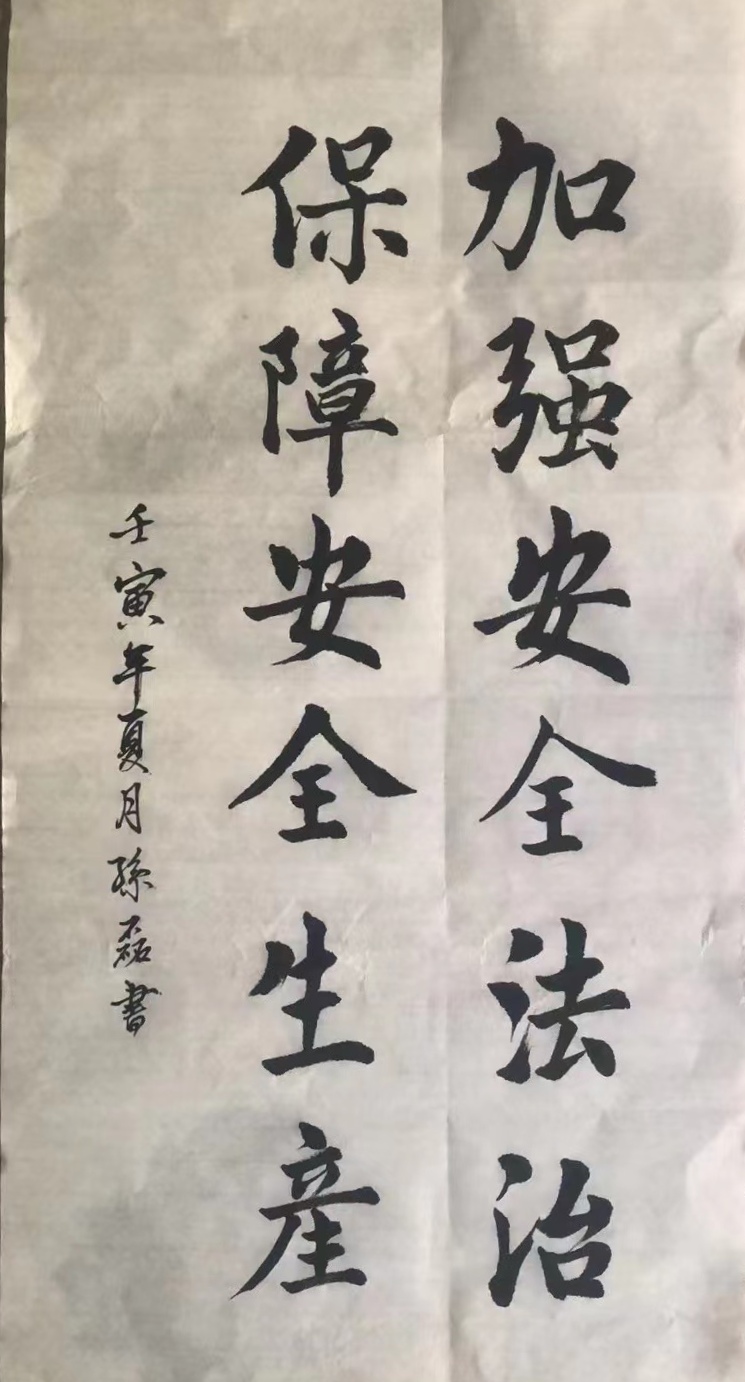 加强安全法治
保障安全生産
壬寅年夏月孫磊書